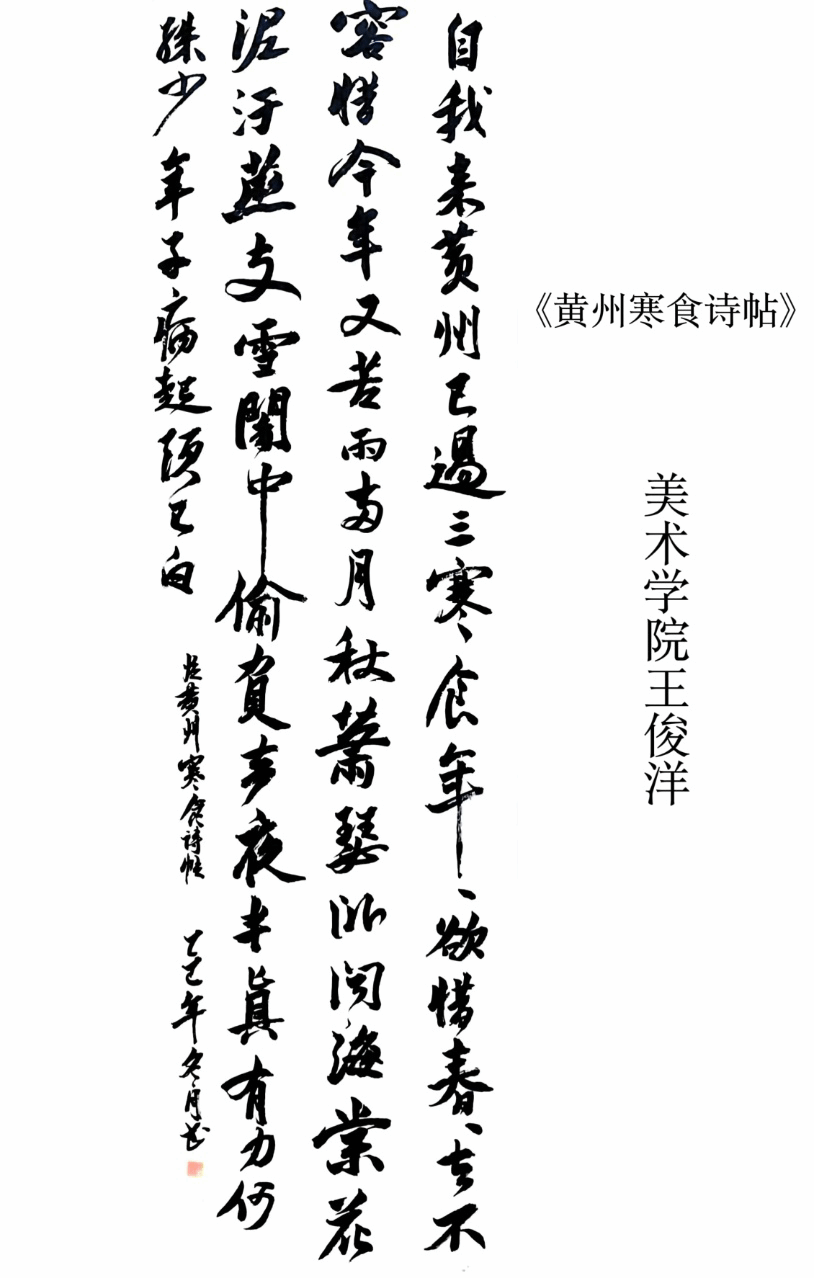 《黄州寒食诗帖》
美术学院王俊洋
自我来黄州已過三寒食年、欲惜春、去不
容惜今年又苦雨兩月秋蕭瑟卧闻海棠花
泥汙燕支雪闇中偷負去夜半真有力何
殊少年子病起頭已白
临黄州寒食诗帖
乙巳年冬月书